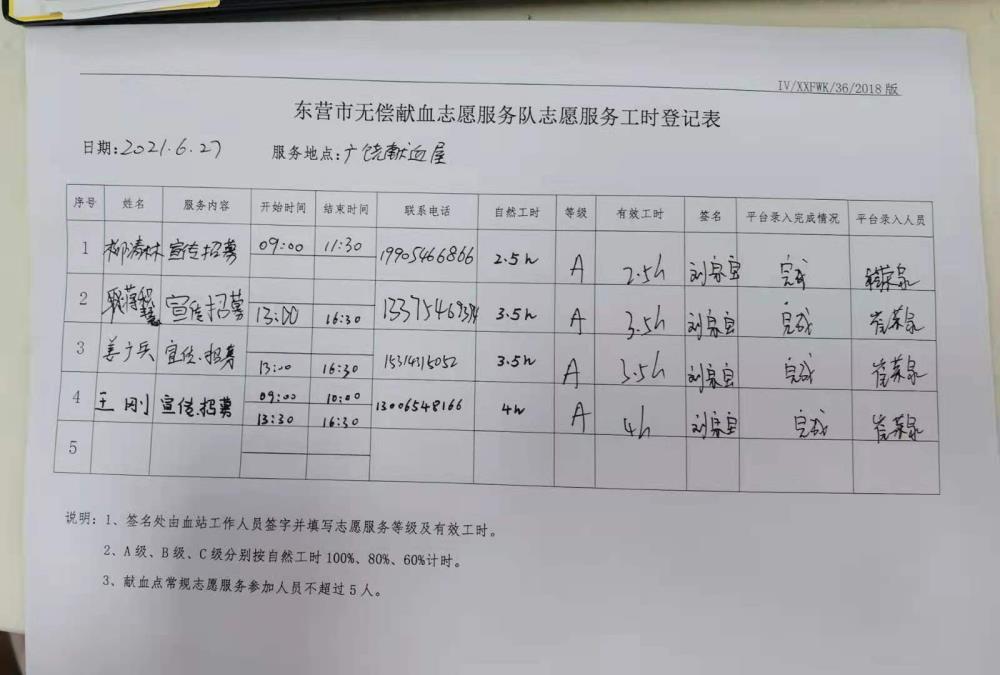 IV/XXFWK/36/2018版
东营市无偿献血志愿服务队志愿服务工时登记表
日期:2021.6.27 服务地点:广饶献血屋
序号 姓名 服务内容 开始时间 结束时间 联系电话 自然工时 等级 有效工时 签名 平台录入完成情况 平台录入人员
1 柳清林 宣传招募 09:00 11:30 19905466866 2.5h A 2.5h 完成
2 宣传招募 13:00 16:30 3.5h A 3.5h 完成
3 姜少兵 宣传.招募 13:00 16:30 15314315052 3.5h A 3.5h 完成
4 王刚 宣传.招募 09:00 10:00 13006548166 4h A 4h 完成
13:30 16:30
5
说明：1、签名处由血站工作人员签字并填写志愿服务等级及有效工时。
2、A级、B级、C级分别按自然工时100%、80%、60%计时。
3、献血点常规志愿服务参加人员不超过5人。